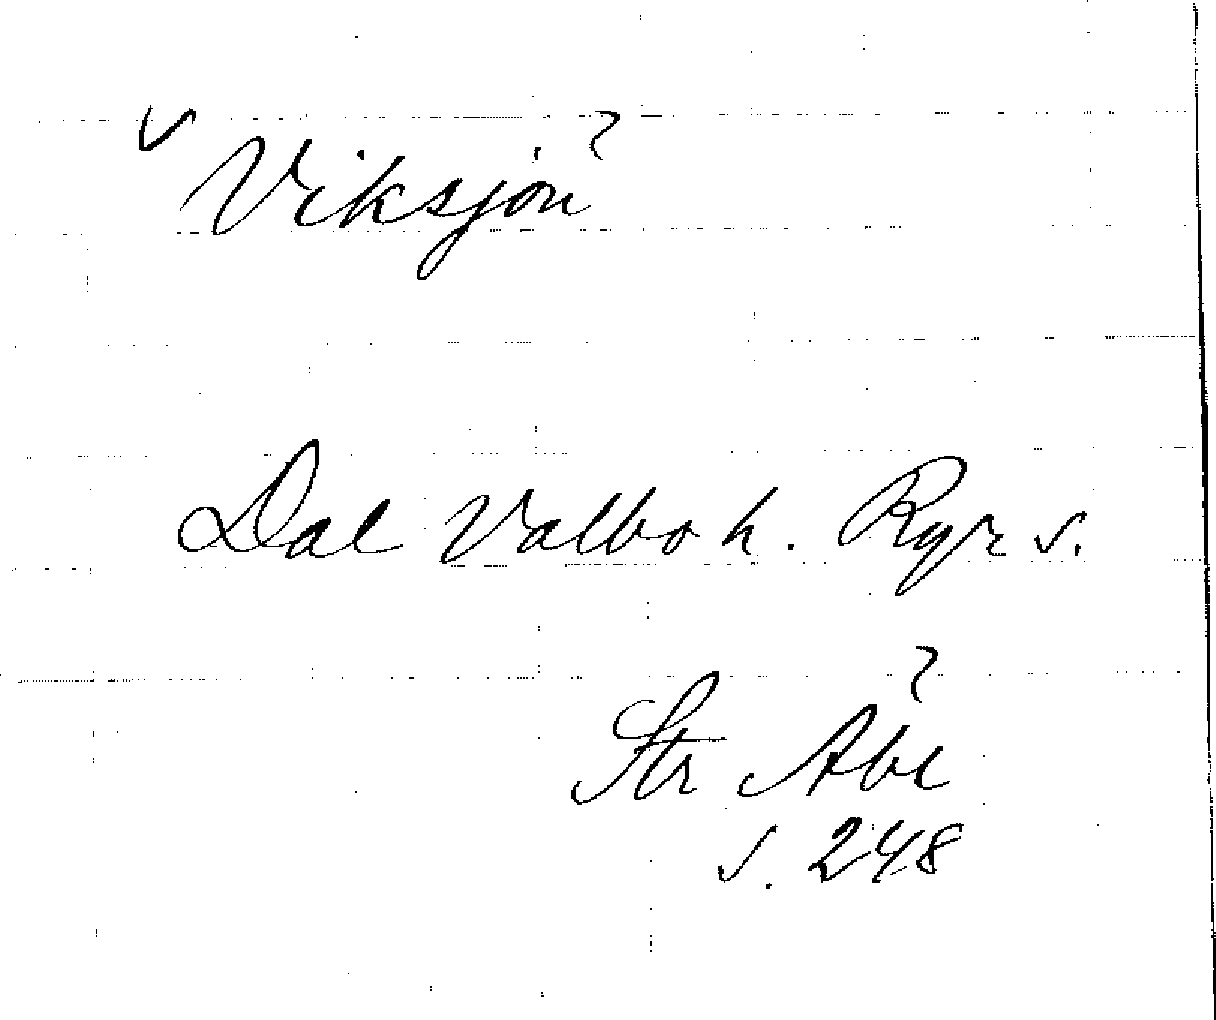 v Viksjön
Dal Valbo h. Ryr s.
Str Åbl
s. 248